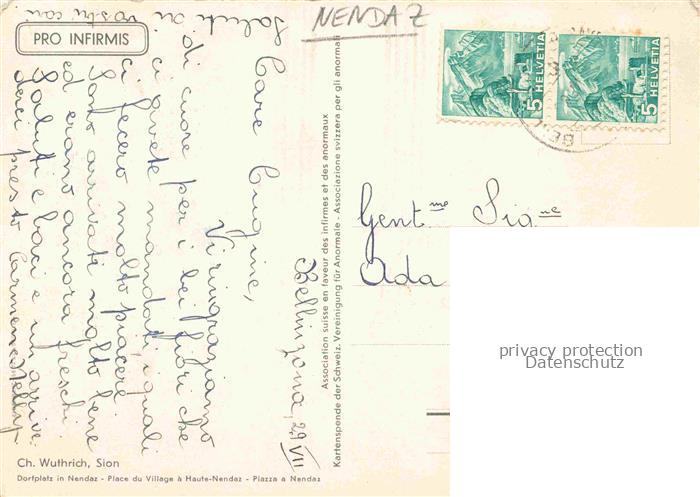 NENDAZ
PRO INFIRMIS
HELVETIA 5
HELVETIA 5
Bellinzona, 29 VII
Care Cugine,
Vi ringraziamo
di cuore per i bei fiori che
ci avete mandati, i quali
ci fecero molto piacere.
Sono arrivati molto bene
ed erano ancora freschi
Saluti e baci e un arrive-
derci presto Carmen e Nelly
Saluti ai vostri cari
Association suisse en faveur des infirmes et des anormaux
Kartenspende der Schweiz. Vereinigung für Anormale - Associazione svizzera per gli anormali
Gent.me Sig.ne
Ada
privacy protection
Datenschutz
Ch. Wuthrich, Sion
Dorfplatz in Nendaz - Place du Village à Haute-Nendaz - Piazza a Nendaz